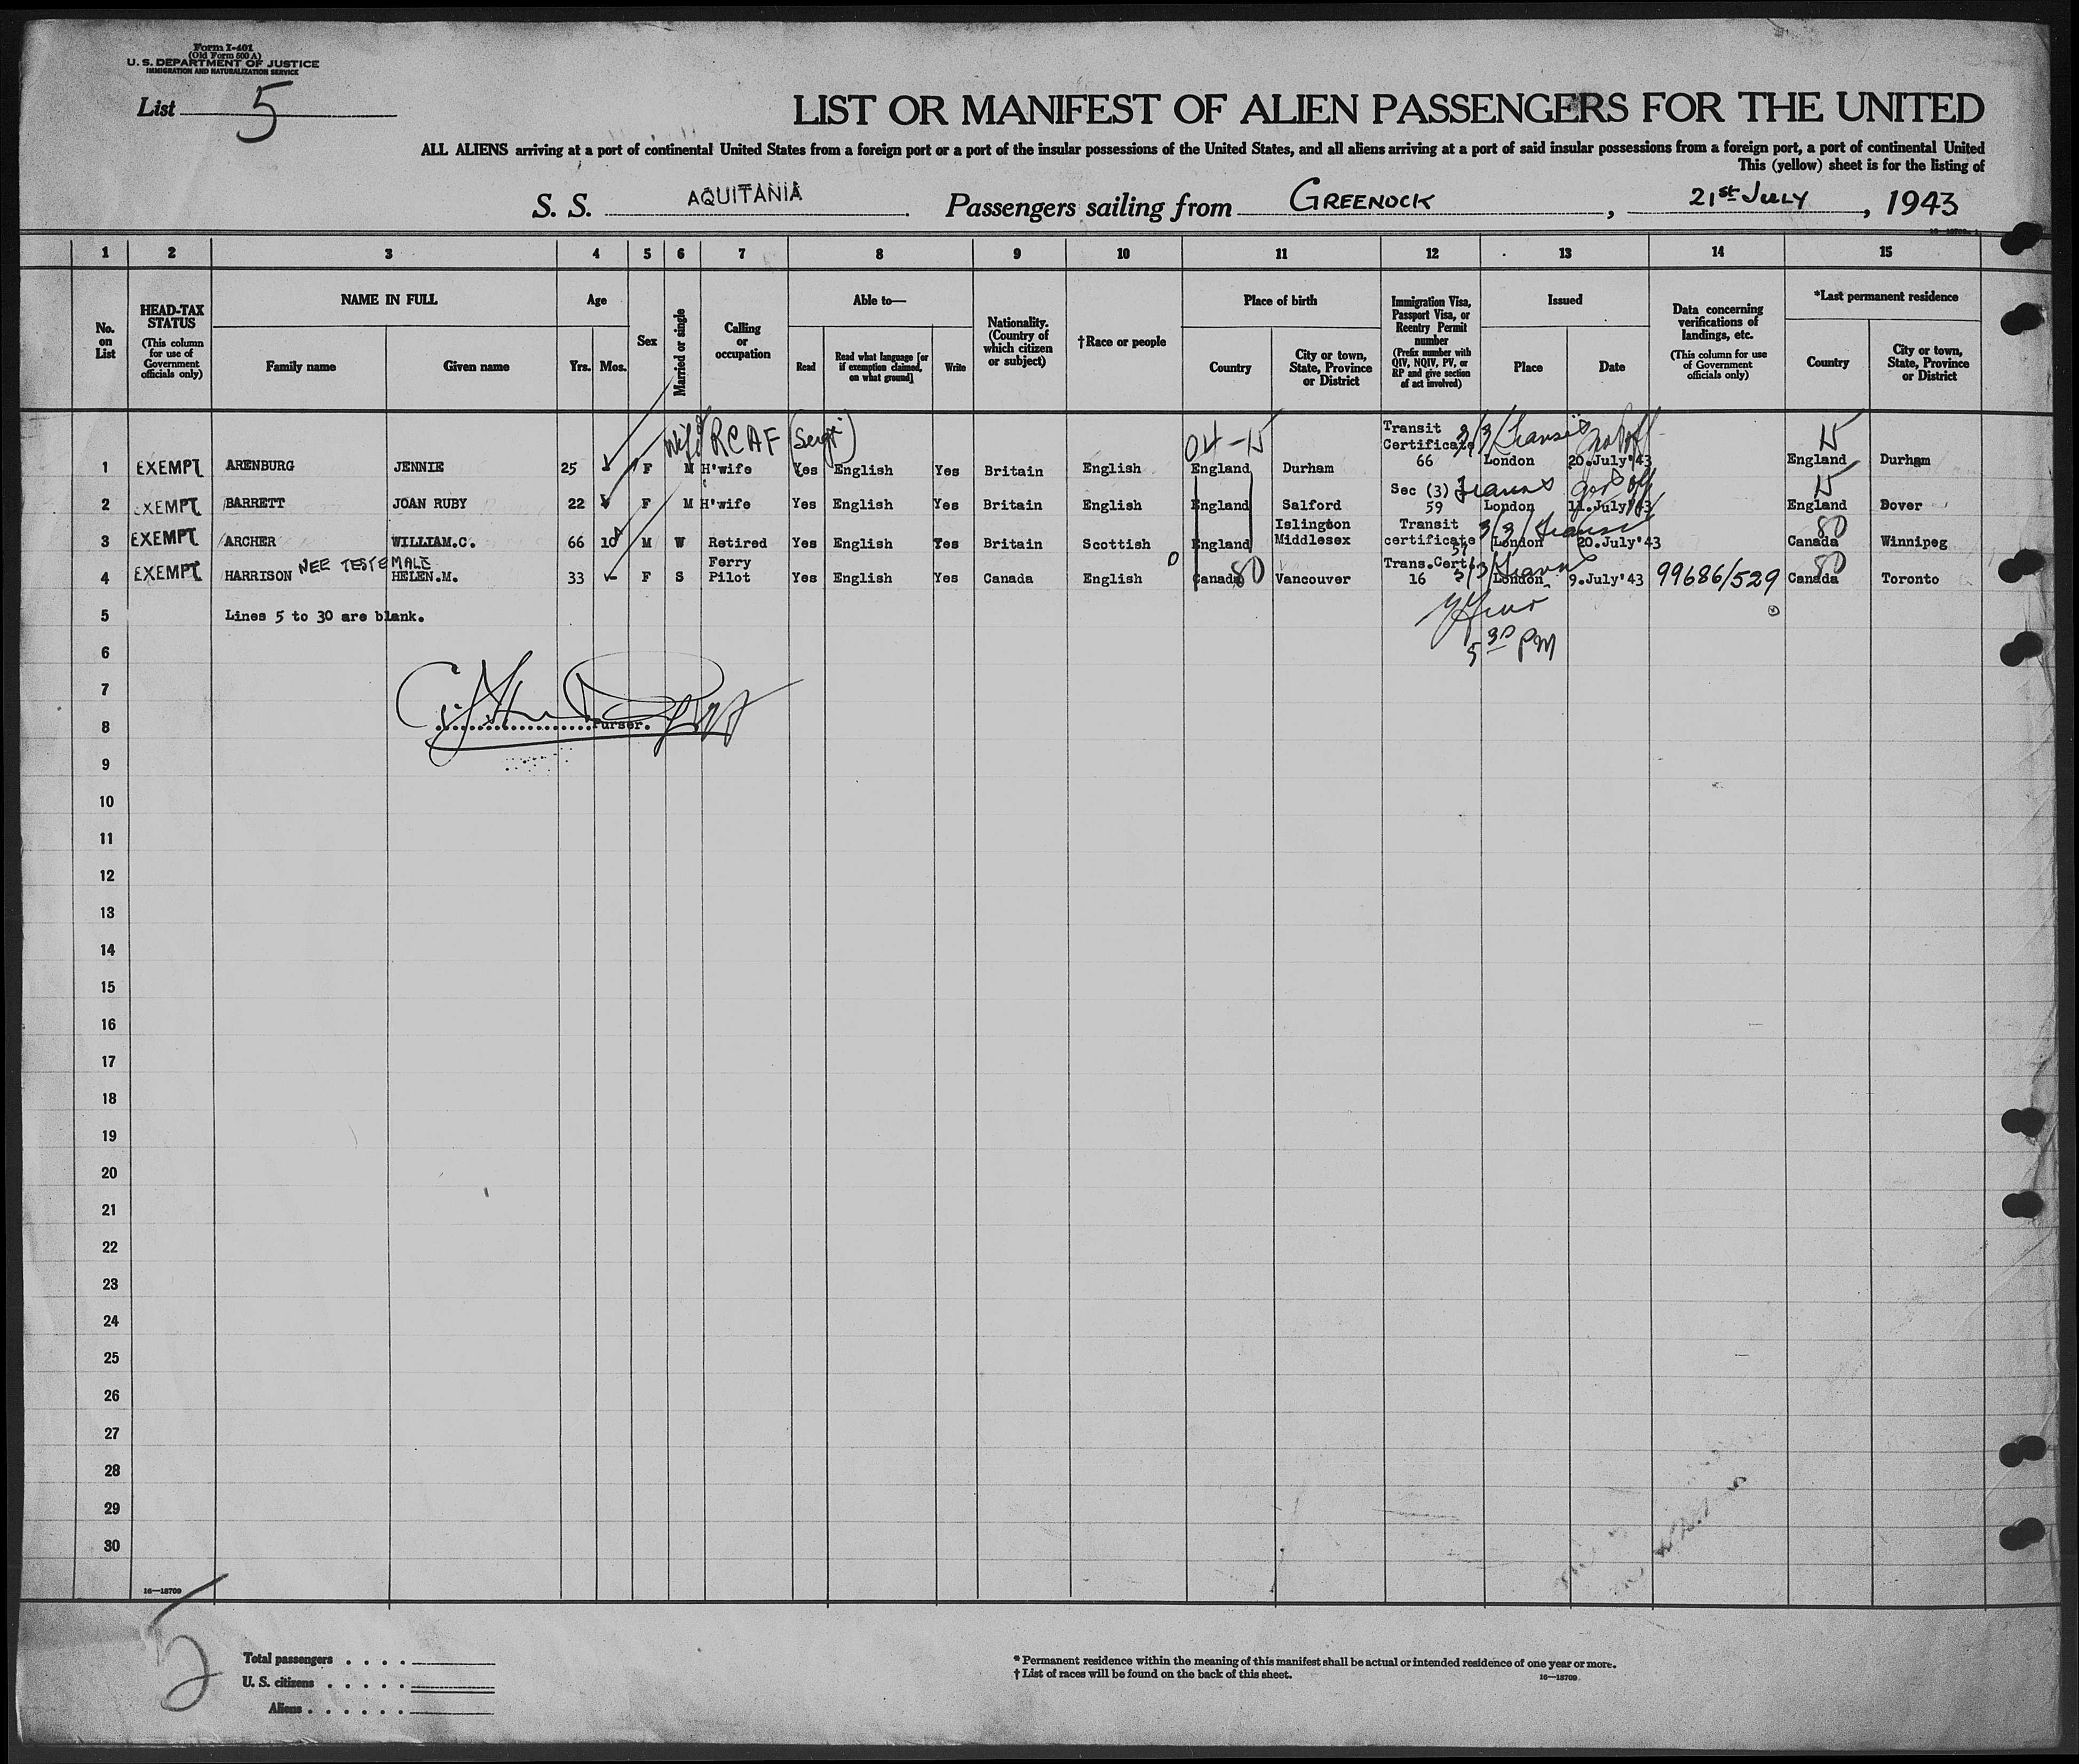 Form I-401
(Old Form 500 A)
U. S. DEPARTMENT OF JUSTICE
IMMIGRATION AND NATURALIZATION SERVICE
List 5
LIST OR MANIFEST OF ALIEN PASSENGERS FOR THE UNITED
ALL ALIENS arriving at a port of continental United States from a foreign port or a port of the insular possessions of the United States, and all aliens arriving at a port of said insular possessions from a foreign port, a port of continental United
This (yellow) sheet is for the listing of
S. S. AQUITANIA Passengers sailing from GREENOCK, 21st JULY, 1943
1 2 3 4 5 6 7 8 9 10 11 12 13 14 15
No. on List
HEAD-TAX STATUS (This column for use of Government officials only)
NAME IN FULL
Family name Given name
Age
Yrs. Mos.
Sex
Married or single
Calling or occupation
Able to—
Read Read what language [or if exemption claimed, on what ground] Write
Nationality. (Country of which citizen or subject)
†Race or people
Place of birth
Country City or town, State, Province or District
Immigration Visa, Passport Visa, or Reentry Permit number (Prefix number with QIV, NQIV, PV, or RP and give section of act involved)
Issued
Place Date
Data concerning verifications of landings, etc. (This column for use of Government officials only)
*Last permanent residence
Country City or town, State, Province or District
Wife of RCAF (Sergt) 04-15 Transit Certificate 3/3 Transit 15
1 EXEMPT ARENBURG JENNIE 25 F M H'wife Yes English Yes Britain English England Durham 66 London 20.July'43 England Durham
Sec (3) Trans 15
2 EXEMPT BARRETT JOAN RUBY 22 F M H'wife Yes English Yes Britain English England Salford 59 London 11.July'43 England Dover
3 EXEMPT ARCHER WILLIAM.C. 66 10 M W Retired Yes English Yes Britain Scottish England Islington Middlesex Transit certificate 57 3/3 Transit London 20.July'43 80 Canada Winnipeg
NEE TESTEMALE
4 EXEMPT HARRISON HELEN.M. 33 F S Ferry Pilot Yes English Yes Canada English Canada 80 Vancouver Trans.Cert. 16 3/3 Trans London 9.July'43 99686/529 80 Canada Toronto
5 Lines 5 to 30 are blank.
5 30 PM
6
7
8 Purser.
9
10
11
12
13
14
15
16
17
18
19
20
21
22
23
24
25
26
27
28
29
30
16—18709
Total passengers
U. S. citizens
Aliens
* Permanent residence within the meaning of this manifest shall be actual or intended residence of one year or more.
† List of races will be found on the back of this sheet.
16—18709